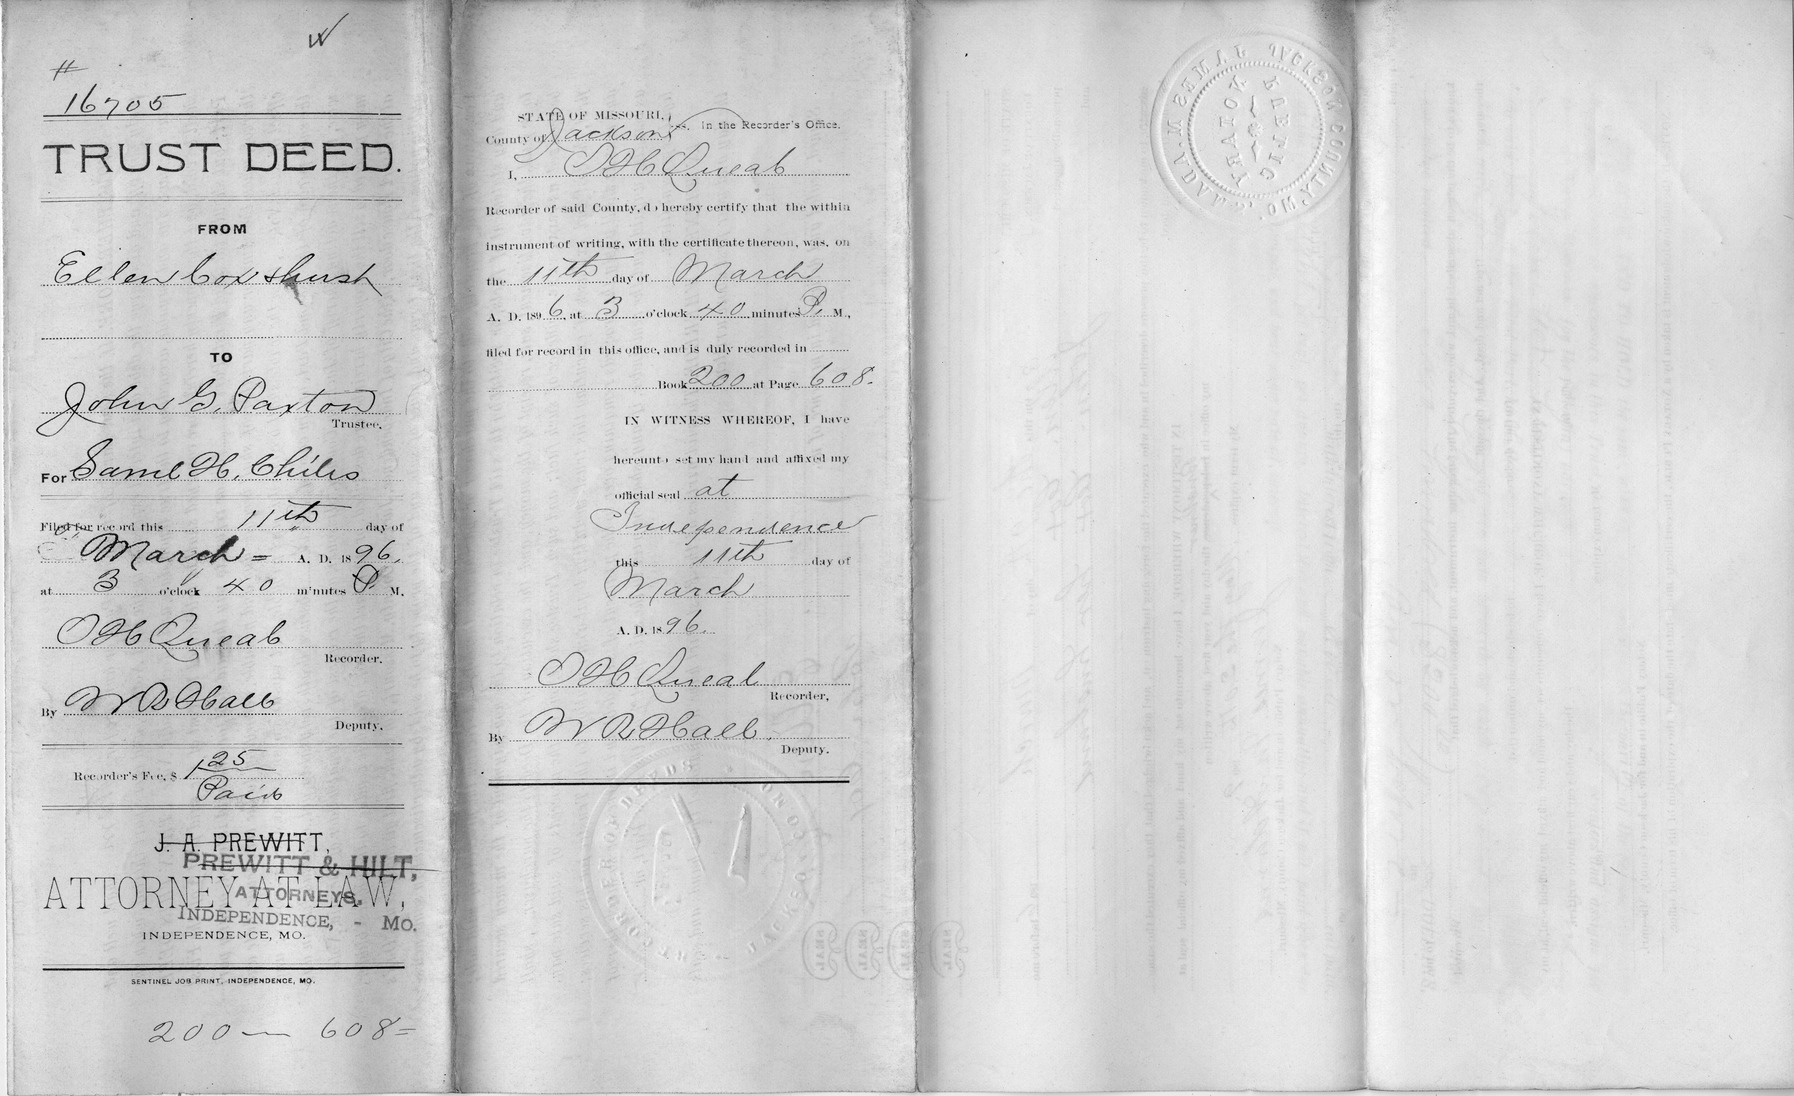 #
16705
TRUST DEED.
FROM
Ellen Cox & hush
TO
John G. Paxton
Trustee.
For Saml H. Chiles
Filed for record this 11th day of
March = A. D. 1896.
at 3 o'clock 40 minutes P M.
Recorder.
By W R Hall
Deputy.
Recorder's Fee, $ 1 25
Paid
J. A. PREWITT,
PREWITT & HILT,
ATTORNEY AT LAW,
ATTORNEYS,
INDEPENDENCE, - MO.
INDEPENDENCE, MO.
SENTINEL JOB PRINT, INDEPENDENCE, MO.
200 — 608 =
STATE OF MISSOURI,
County of Jackson ss. In the Recorder's Office.
I, O H Queal
Recorder of said County, do hereby certify that the within
instrument of writing, with the certificate thereon, was, on
the 11th day of March
A. D. 1896, at 3 o'clock 40 minutes P. M.,
filed for record in this office, and is duly recorded in
Book 200 at Page 608.
IN WITNESS WHEREOF, I have
hereunto set my hand and affixed my
official seal at
Independence
this 11th day of
March
A. D. 1896.
O H Queal
Recorder,
By W R Hall.
Deputy.